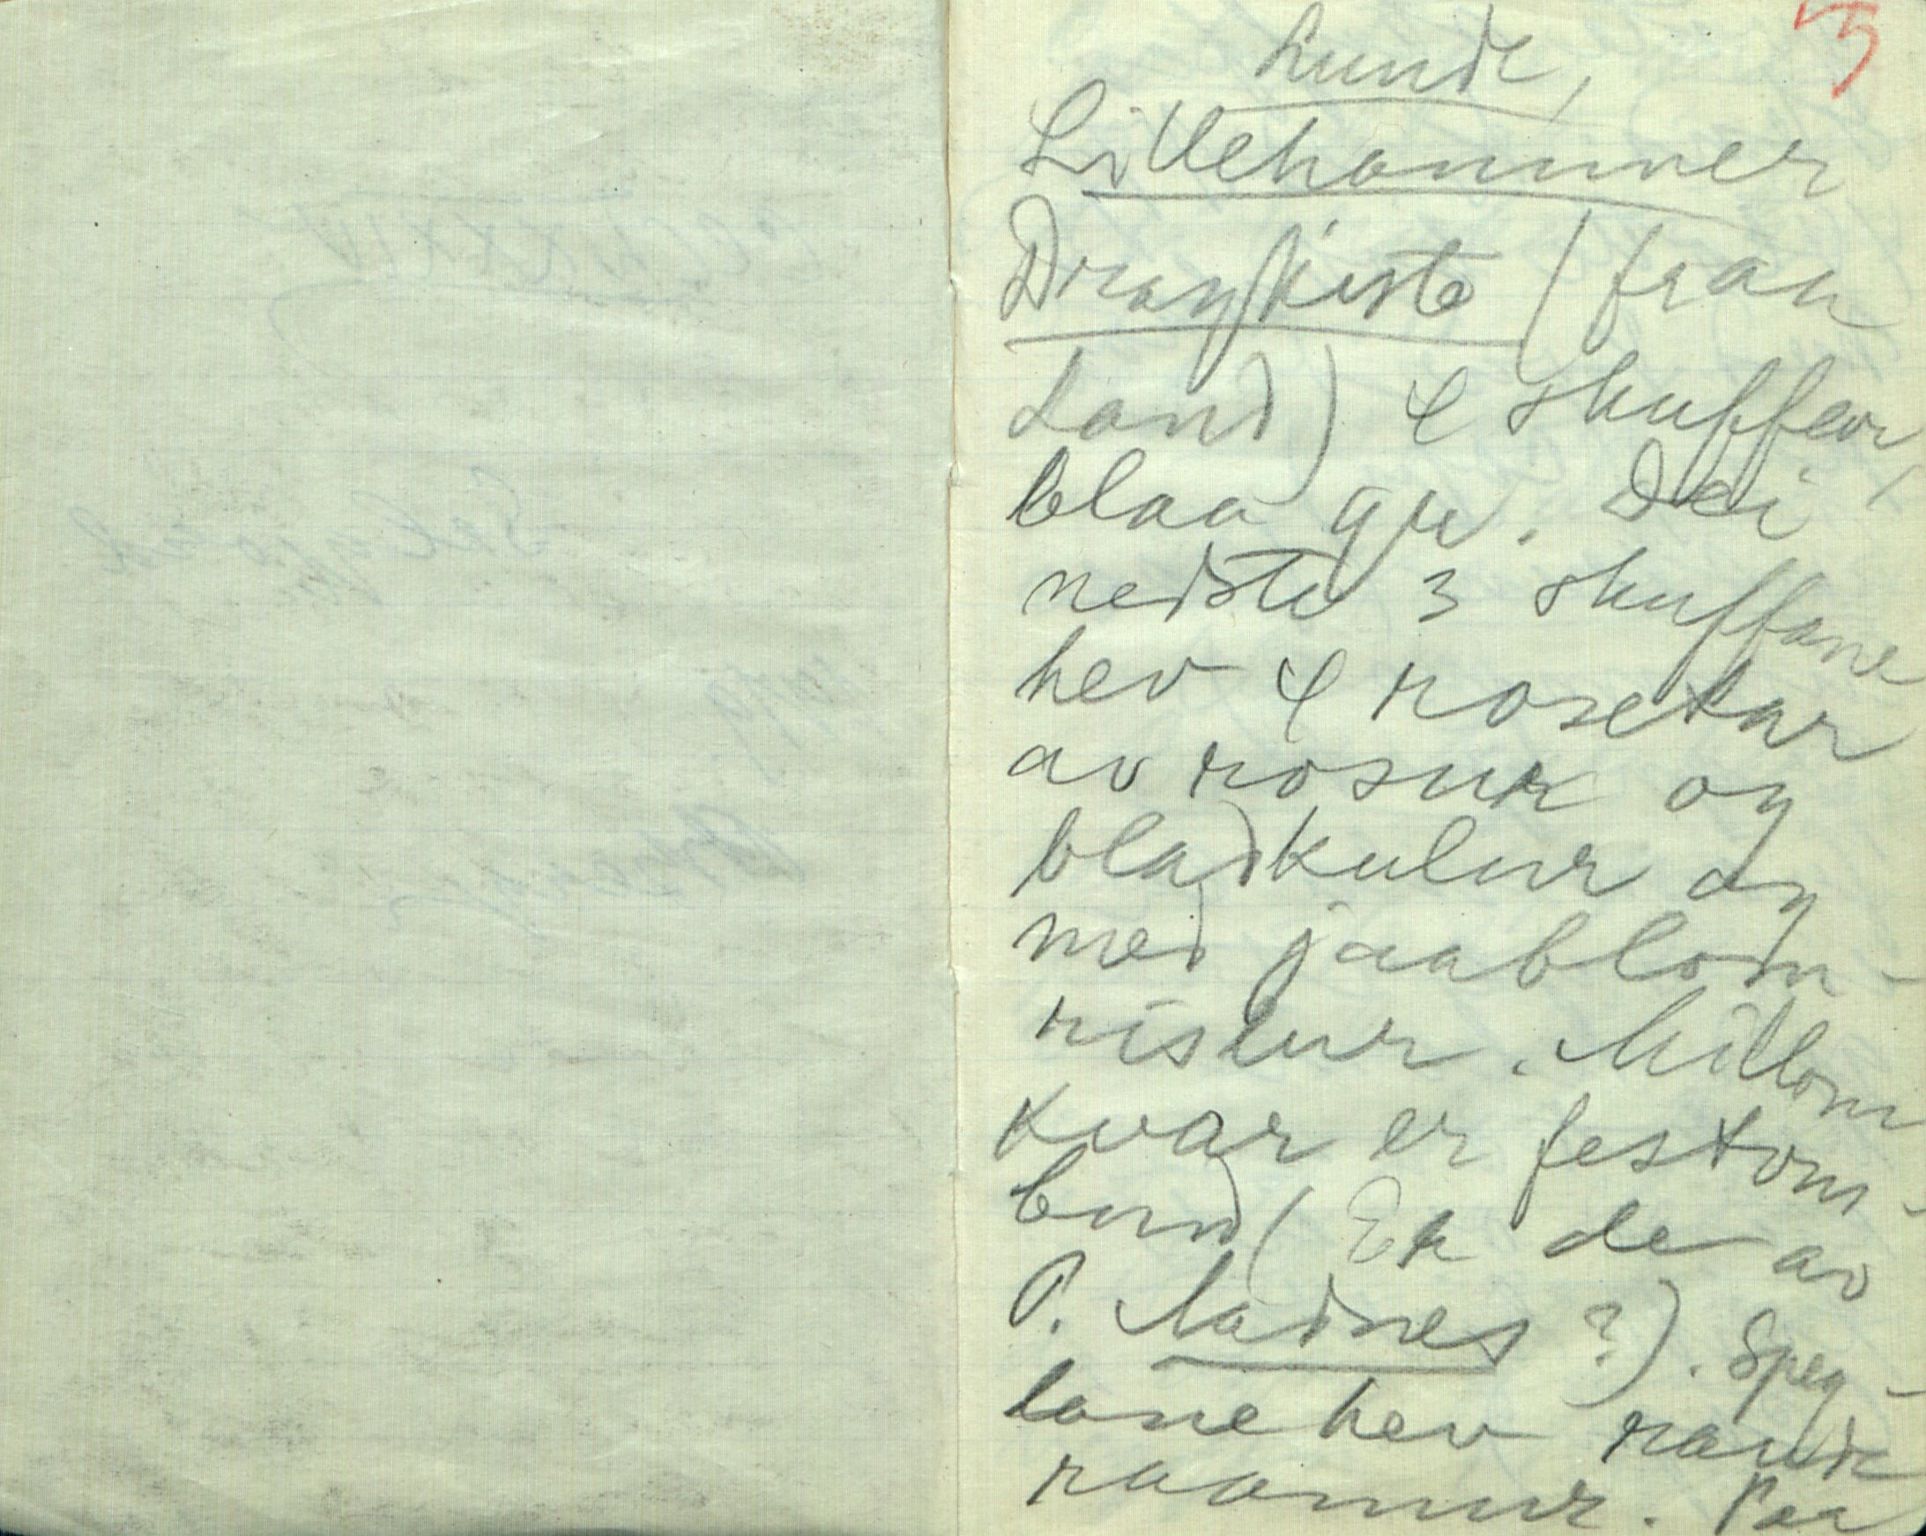 5
Lunde,
Lillehammer
Dragkiste (fraa
Land) 4 skuffur,
blaa gr. Dei
nedste 3 skuffane
hev 4 rosettar
av rosur og
bladkulur og
med jaablom-
ristur. Millom
kvar er festom-
bund (Er de av
P. Aadnes?). Speg-
lane hev raude
raamur. Paa